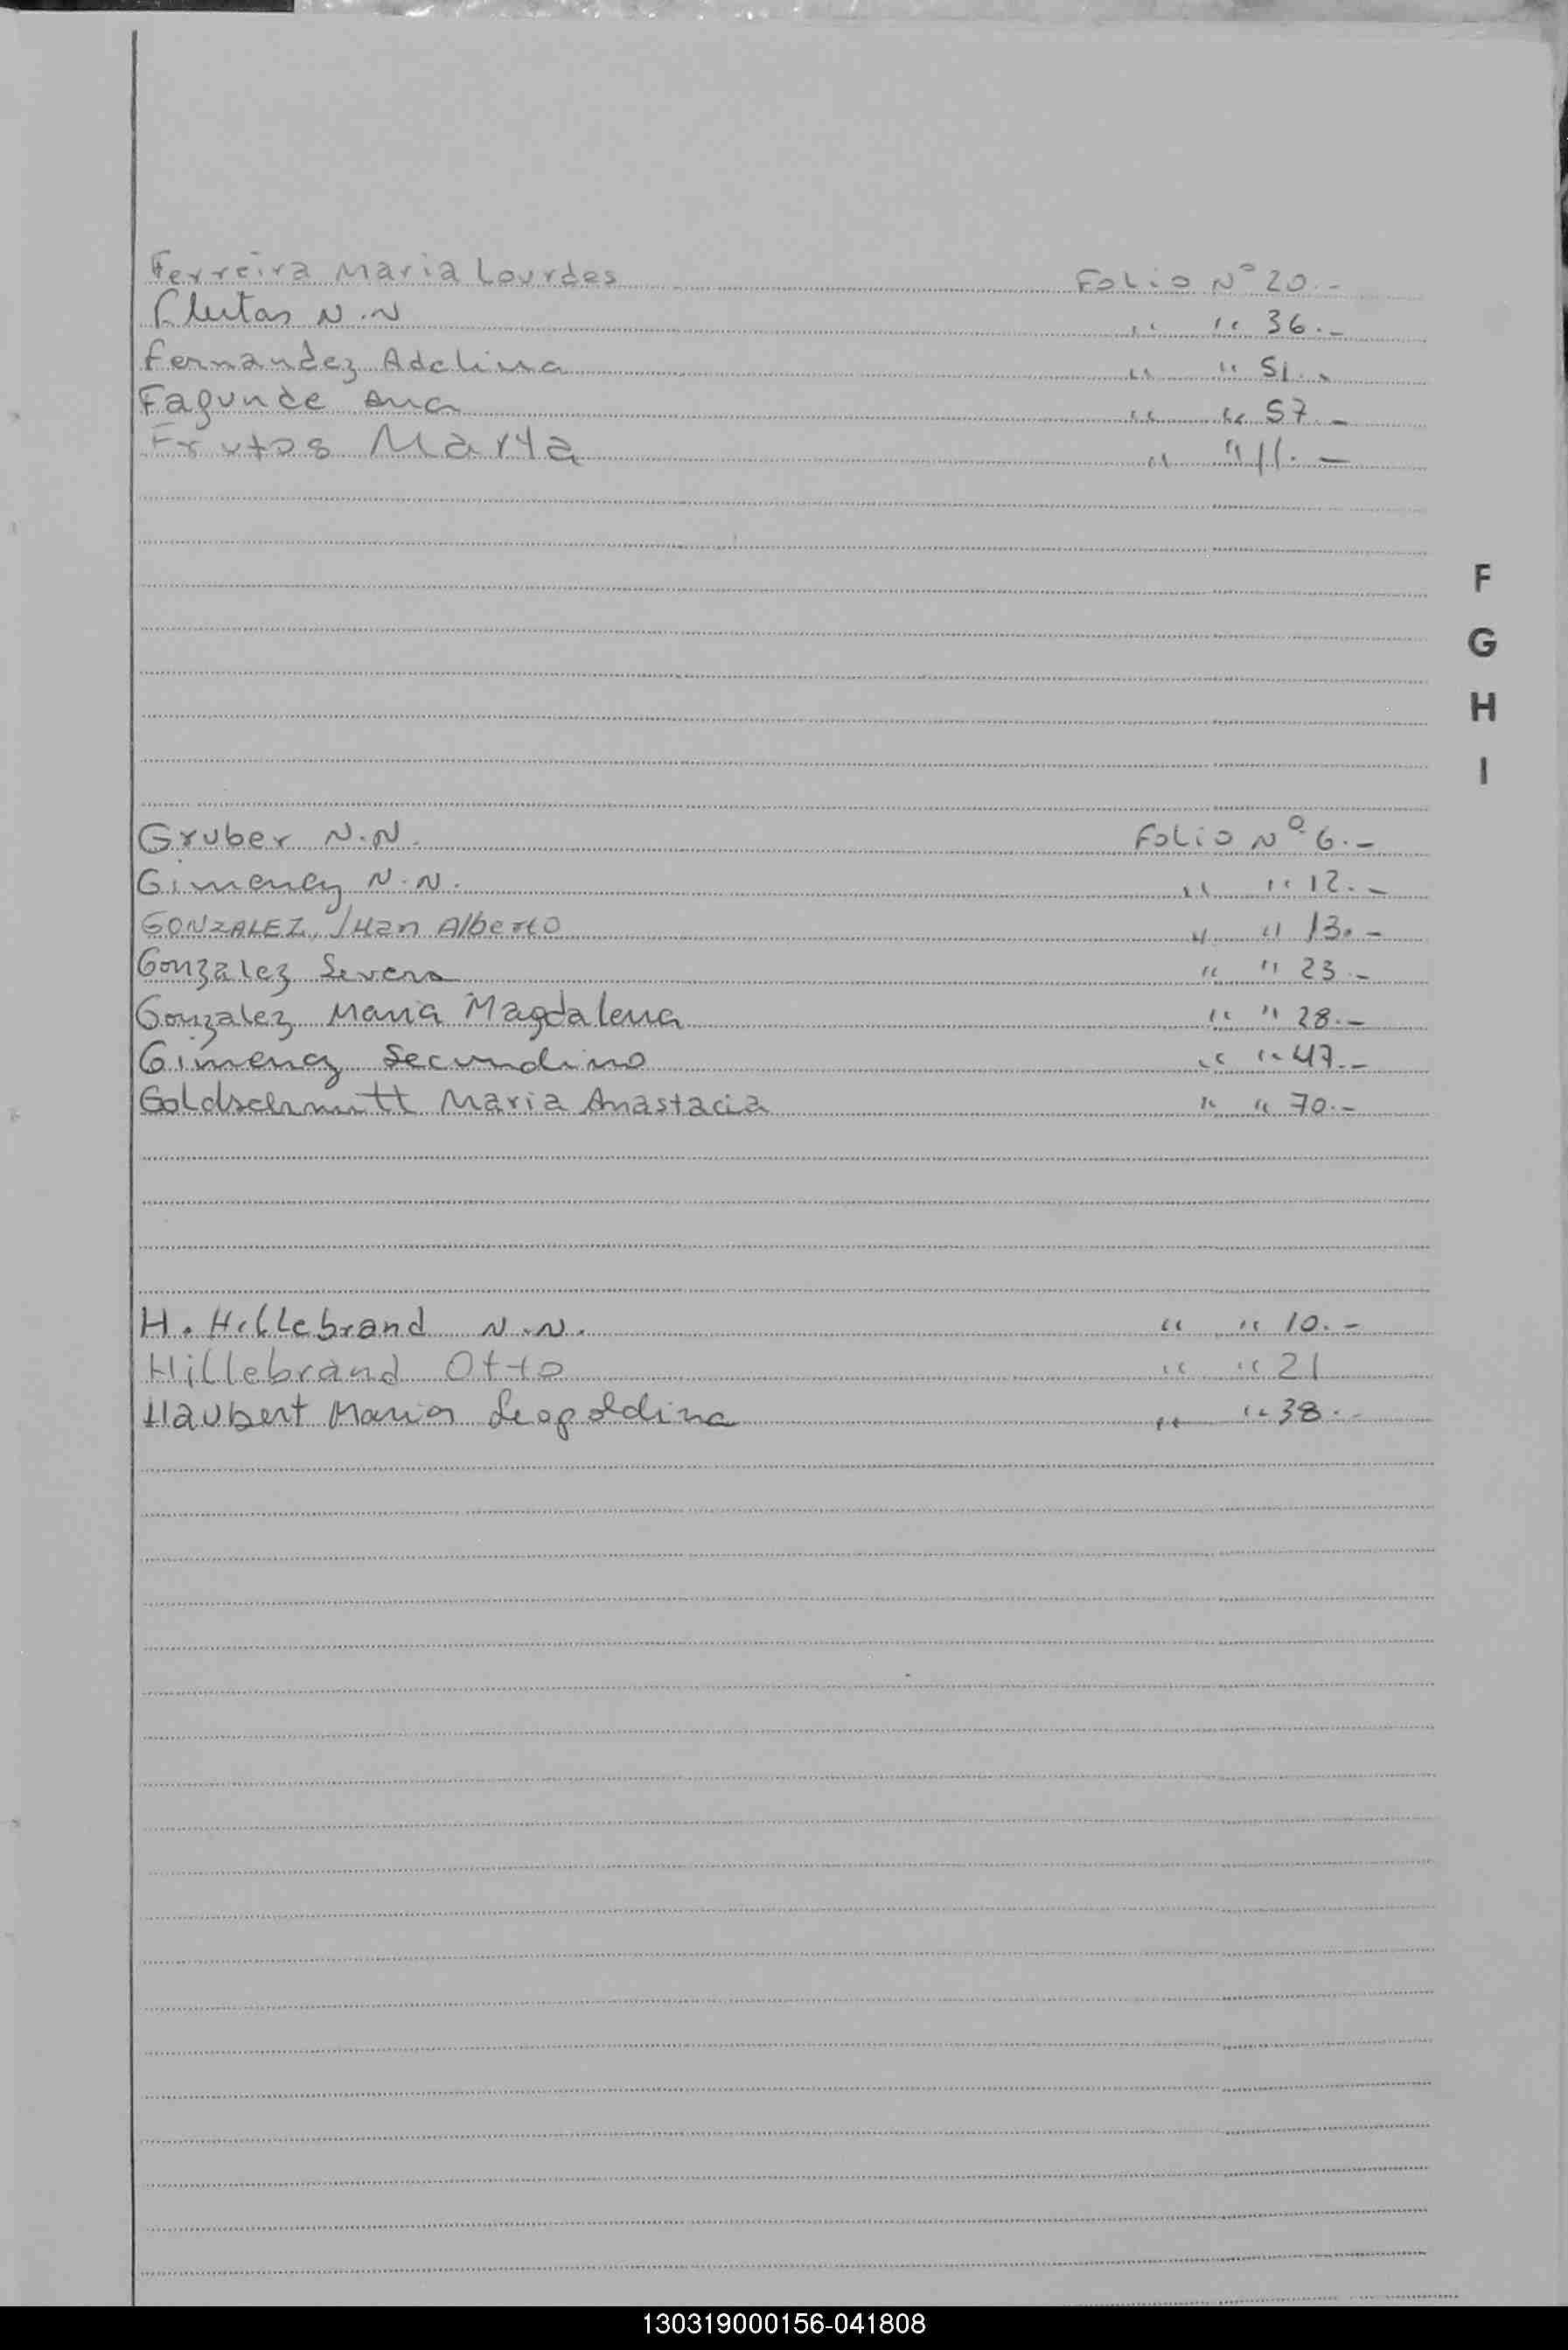 Ferreira Maria Lourdes Folio Nº 20.-
N.N " " 36.-
Fernandez Adelina " " 51.-
Fagunde Ana " " 57.-
Frutos Marta " " 11.-
F
G
H
I
Gruber N.N. Folio Nº 6.-
Gimenez N.N. " " 12.-
GONZALEZ, Juan Alberto " " 13.-
Gonzalez Severa " " 23.-
Gonzalez Maria Magdalena " " 28.-
Gimenez Secundino " " 47.-
Goldschmitt Maria Anastacia " " 70.-
H. Hillebrand N.N. " " 10.-
Hillebrand Otto " " 21
Haubert Maria Leopoldina " " 38.-
130319000156-041808